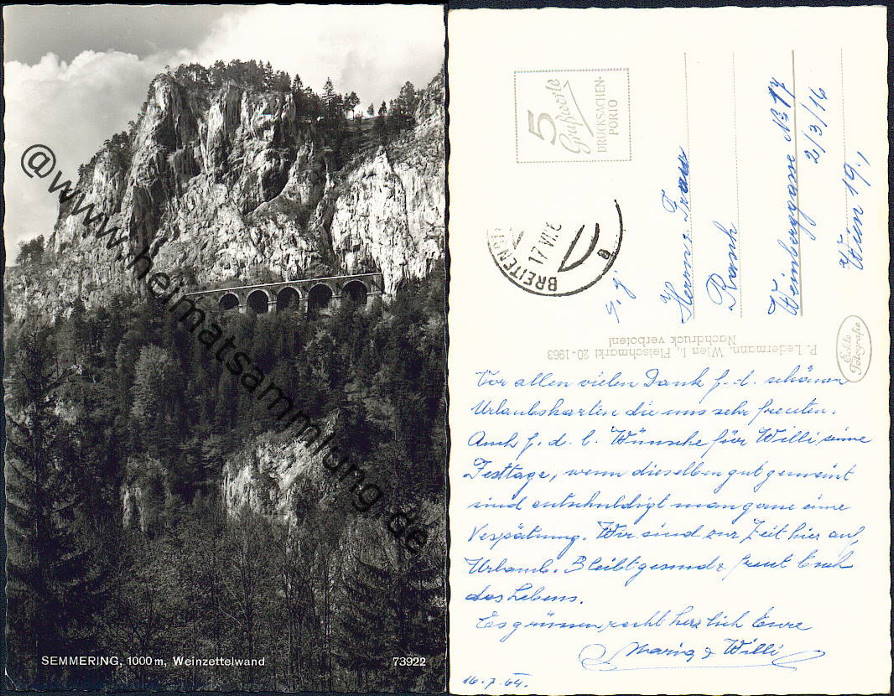 @www.heimatsammlung.de
SEMMERING, 1000 m, Weinzettelwand
73922
5
Grußworte
DRUCKSACHEN-
PORIO
BREITEN
17.VII.6
a
Herrn Frau
Weinberggasse No 17
2/3/16
Wien 19.,
P. Ledermann, Wien I., Fleischmarkt 20.-1963
Nachdruck verboten!
Echte
Fotografie
Vor allen vielen Dank f. d. schönen
Urlaubskarten die uns sehr freuten.
Auch f. d. l. Wünsche für Willi, seine
Festtage, wenn dieselben gut gemeint
sind entschuldigt man gerne eine
Vespätung. Wir sind zur Zeit hier auf
Urlaub. Bleibt gesund & freut Euch
des Lebens.
Es grüssen, recht herzlich Eure
Maria & Willi
16.7.64.